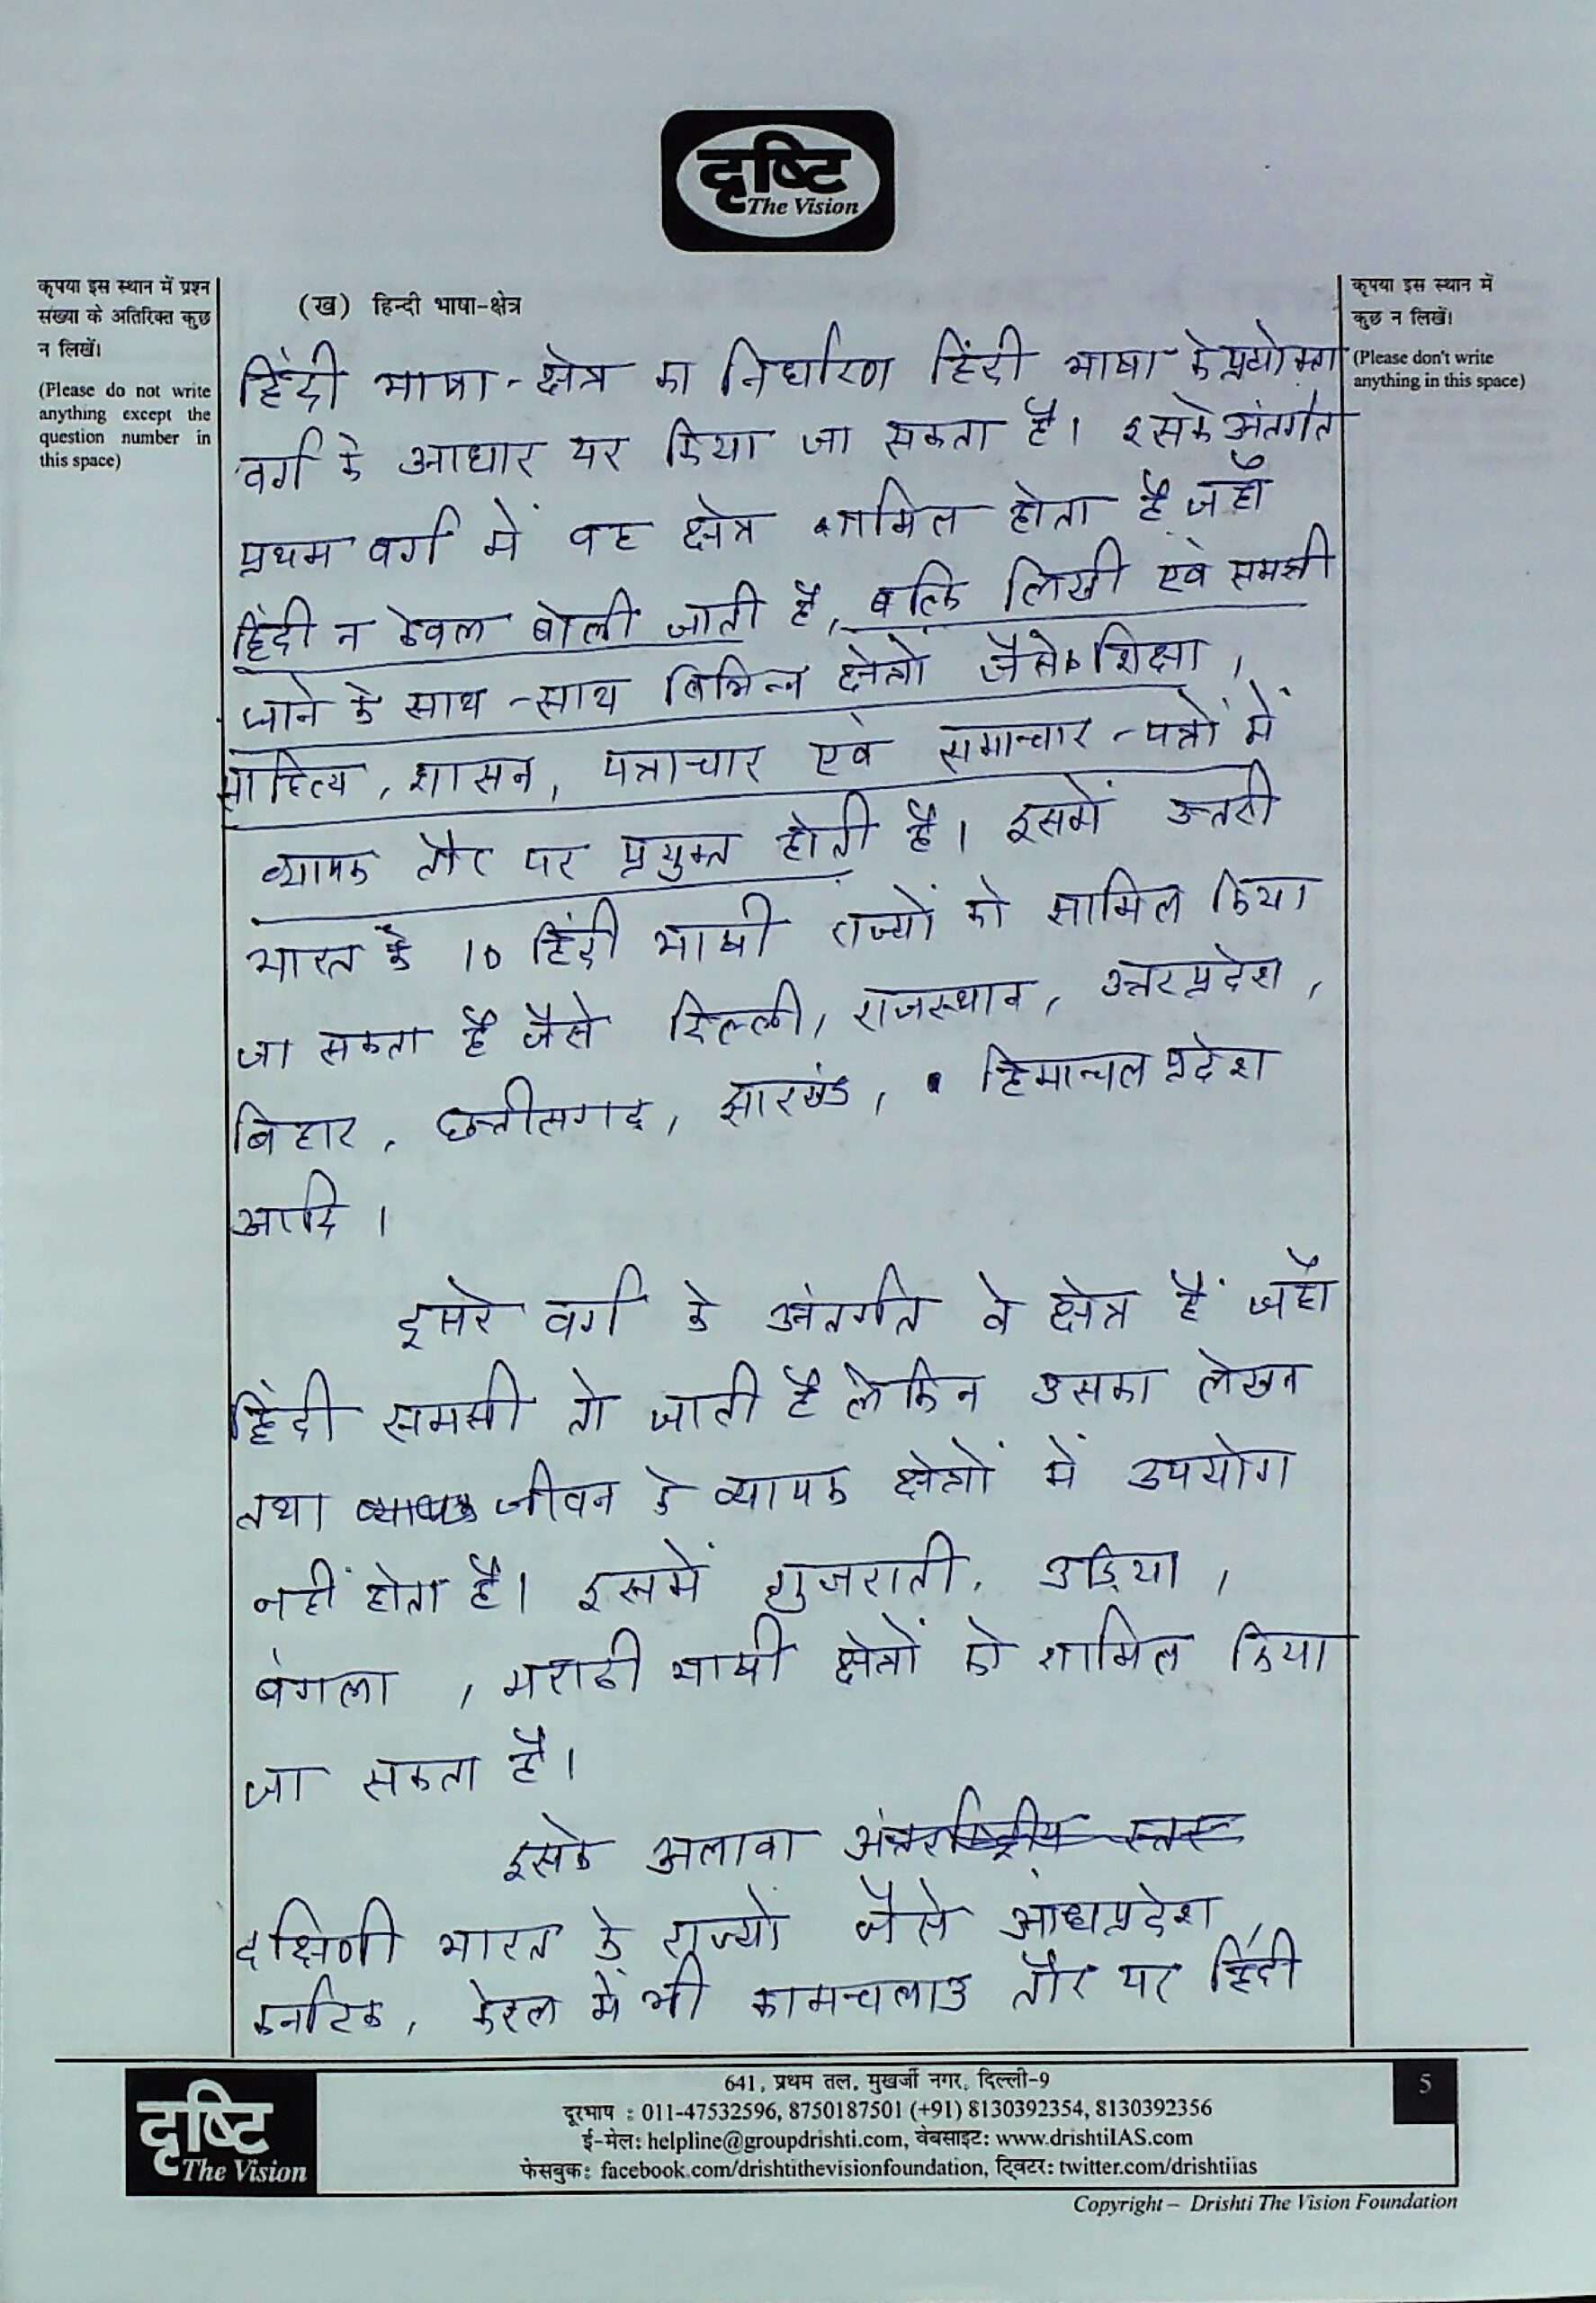 दृष्टि
The Vision
कृपया इस स्थान में प्रश्न
संख्या के अतिरिक्त कुछ
न लिखें।
(Please do not write
anything except the
question number in
this space)
कृपया इस स्थान में
कुछ न लिखें।
(Please don't write
anything in this space)
(ख) हिन्दी भाषा-क्षेत्र
हिंदी भाषा-क्षेत्र का निर्धारण हिंदी भाषा के प्रयोक्ता
वर्ग के आधार पर किया जा सकता है। इसके अंतर्गत
प्रथम वर्ग में वह क्षेत्र शामिल होता है जहाँ
हिंदी न केवल बोली जाती है, बल्कि लिखी एवं समझी
जाने के साथ-साथ विभिन्न क्षेत्रों जैसे शिक्षा,
साहित्य, शासन, पत्राचार एवं समाचार-पत्रों में
व्यापक तौर पर प्रयुक्त होती है। इसमें उत्तरी
भारत के 10 हिंदी भाषी राज्यों को सामिल किया
जा सकता है जैसे दिल्ली, राजस्थान, उत्तरप्रदेश,
बिहार, छत्तीसगढ़, झारखंड, हिमाचल प्रदेश
आदि।
दूसरे वर्ग के अंतर्गत वे क्षेत्र हैं जहाँ
हिंदी समझी तो जाती है लेकिन उसका लेखन
तथा जीवन के व्यापक क्षेत्रों में उपयोग
नहीं होता है। इसमें गुजराती, उड़िया,
बंगला, मराठी भाषी क्षेत्रों को शामिल किया
जा सकता है।
इसके अलावा अंतर्राष्ट्रीय स्तर
दक्षिणी भारत के राज्यों जैसे आंध्रप्रदेश,
कर्नाटक, केरल में भी कामचलाउ तौर पर हिंदी
दृष्टि
The Vision
641, प्रथम तल, मुखर्जी नगर, दिल्ली-9
दूरभाष : 011-47532596, 8750187501 (+91) 8130392354, 8130392356
ई-मेल: helpline@groupdrishti.com, वेबसाइट: www.drishtiIAS.com
फेसबुक: facebook.com/drishtithevisionfoundation, ट्विटर: twitter.com/drishtiias
5
Copyright – Drishti The Vision Foundation